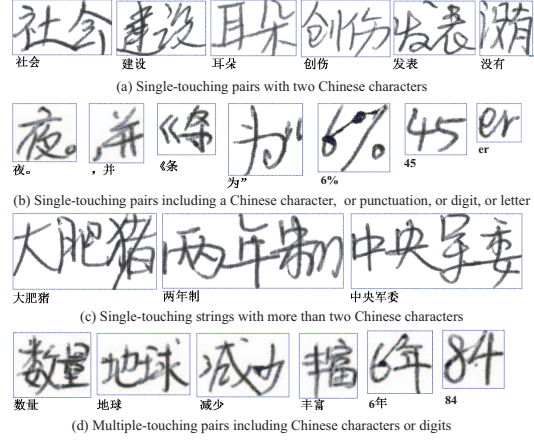 社会 建设 耳朵 创伤 发表 没有
社会 建设 耳朵 创伤 发表 没有
(a) Single-touching pairs with two Chinese characters
夜。 ，并 《条 为” 6% 45 er
夜。 ，并 《条 为” 6% 45 er
(b) Single-touching pairs including a Chinese character, or punctuation, or digit, or letter
大肥猪 两年制 中央军委
大肥猪 两年制 中央军委
(c) Single-touching strings with more than two Chinese characters
数量 地球 减少 丰富 6年 84
数量 地球 减少 丰富 6年 84
(d) Multiple-touching pairs including Chinese characters or digits